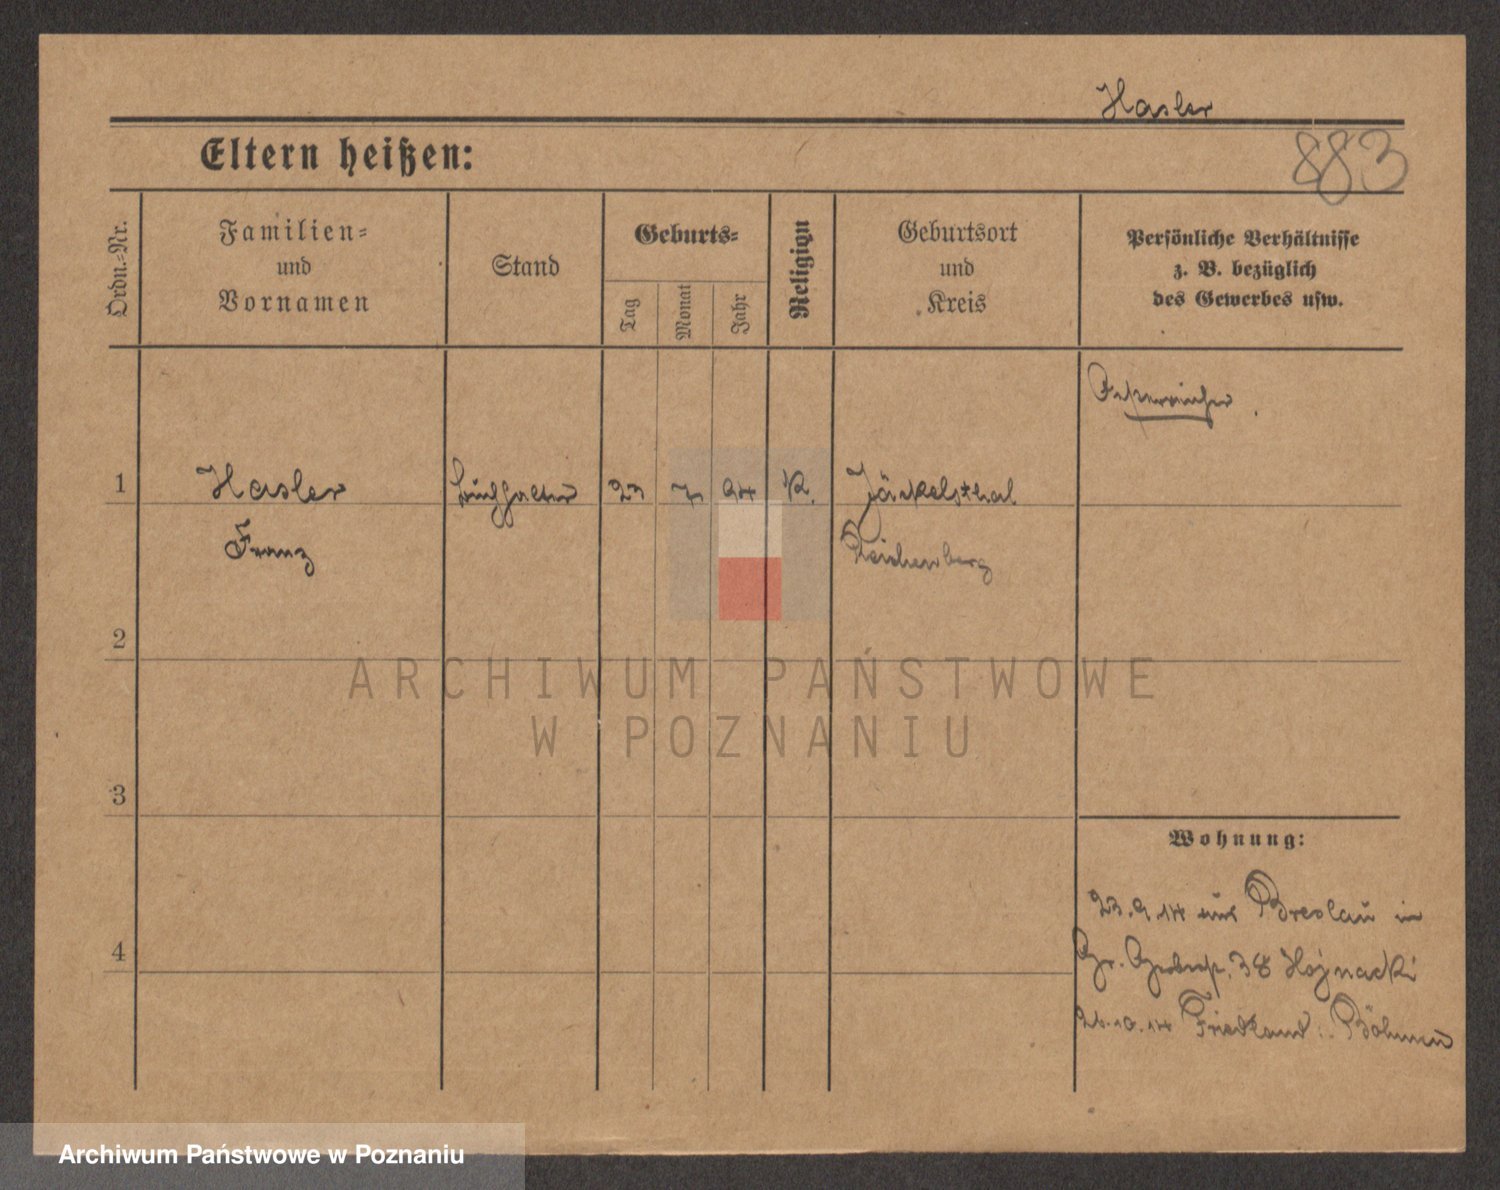 Hasler
Eltern heißen:
883
Ordn.-Nr.
Familien-
und
Vornamen
Stand
Geburts-
Tag
Monat
Jahr
Religion
Geburtsort
und
Kreis
Persönliche Verhältnisse
z. B. bezüglich
des Gewerbes usw.
Österreicher.
1
Hasler
Buchhalter
23
7
94
K.
Jäckelsthal
Franz
Reichenberg
2
ARCHIWUM PAŃSTWOWE
W POZNANIU
3
Wohnung:
23.9.14 aus Breslau in
Gr. Gerberstr. 38 Hojnacki
4
26.10.14 Friedland i. Böhmen
Archiwum Państwowe w Poznaniu